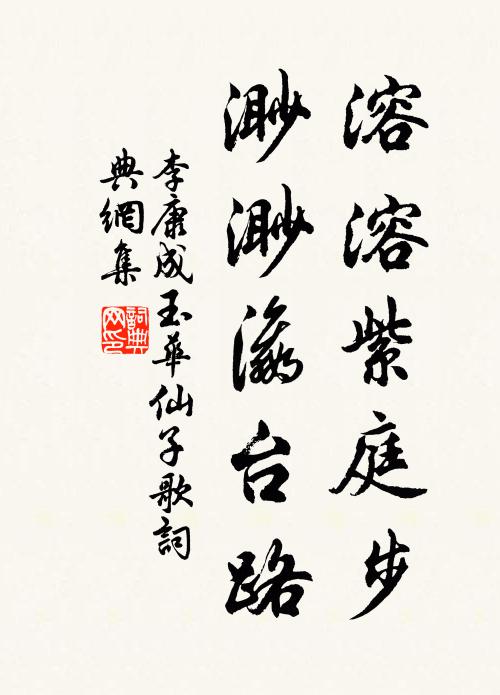 溶溶紫庭步
渺渺瀛台路
李康成玉華仙子歌詞
典網集
詞典
网印